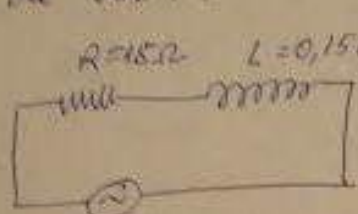 R=15Ω L=0,15